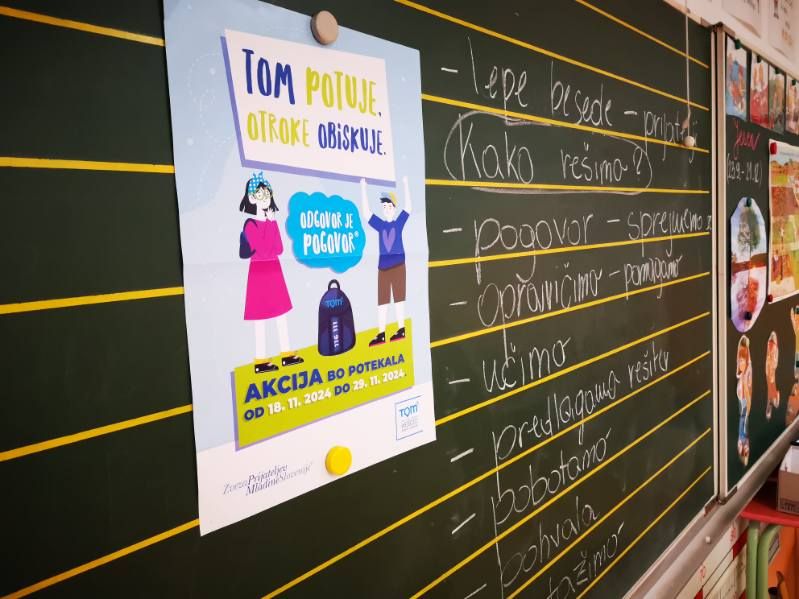 TOM POTUJE,
OTROKE OBISKUJE.
ODGOVOR JE
POGOVOR®
TOM®
116 111
AKCIJA BO POTEKALA
OD 18. 11. 2024 DO 29. 11. 2024.
TOM®
Zveza Prijateljev
Mladine Slovenije®
- lepe besede - prijatelji
Kako rešimo?
- pogovor - sprejmemo
- opravičimo - pomagamo
- učimo
- predlagamo rešitev
- pobotamo
- pohvala
Jesen